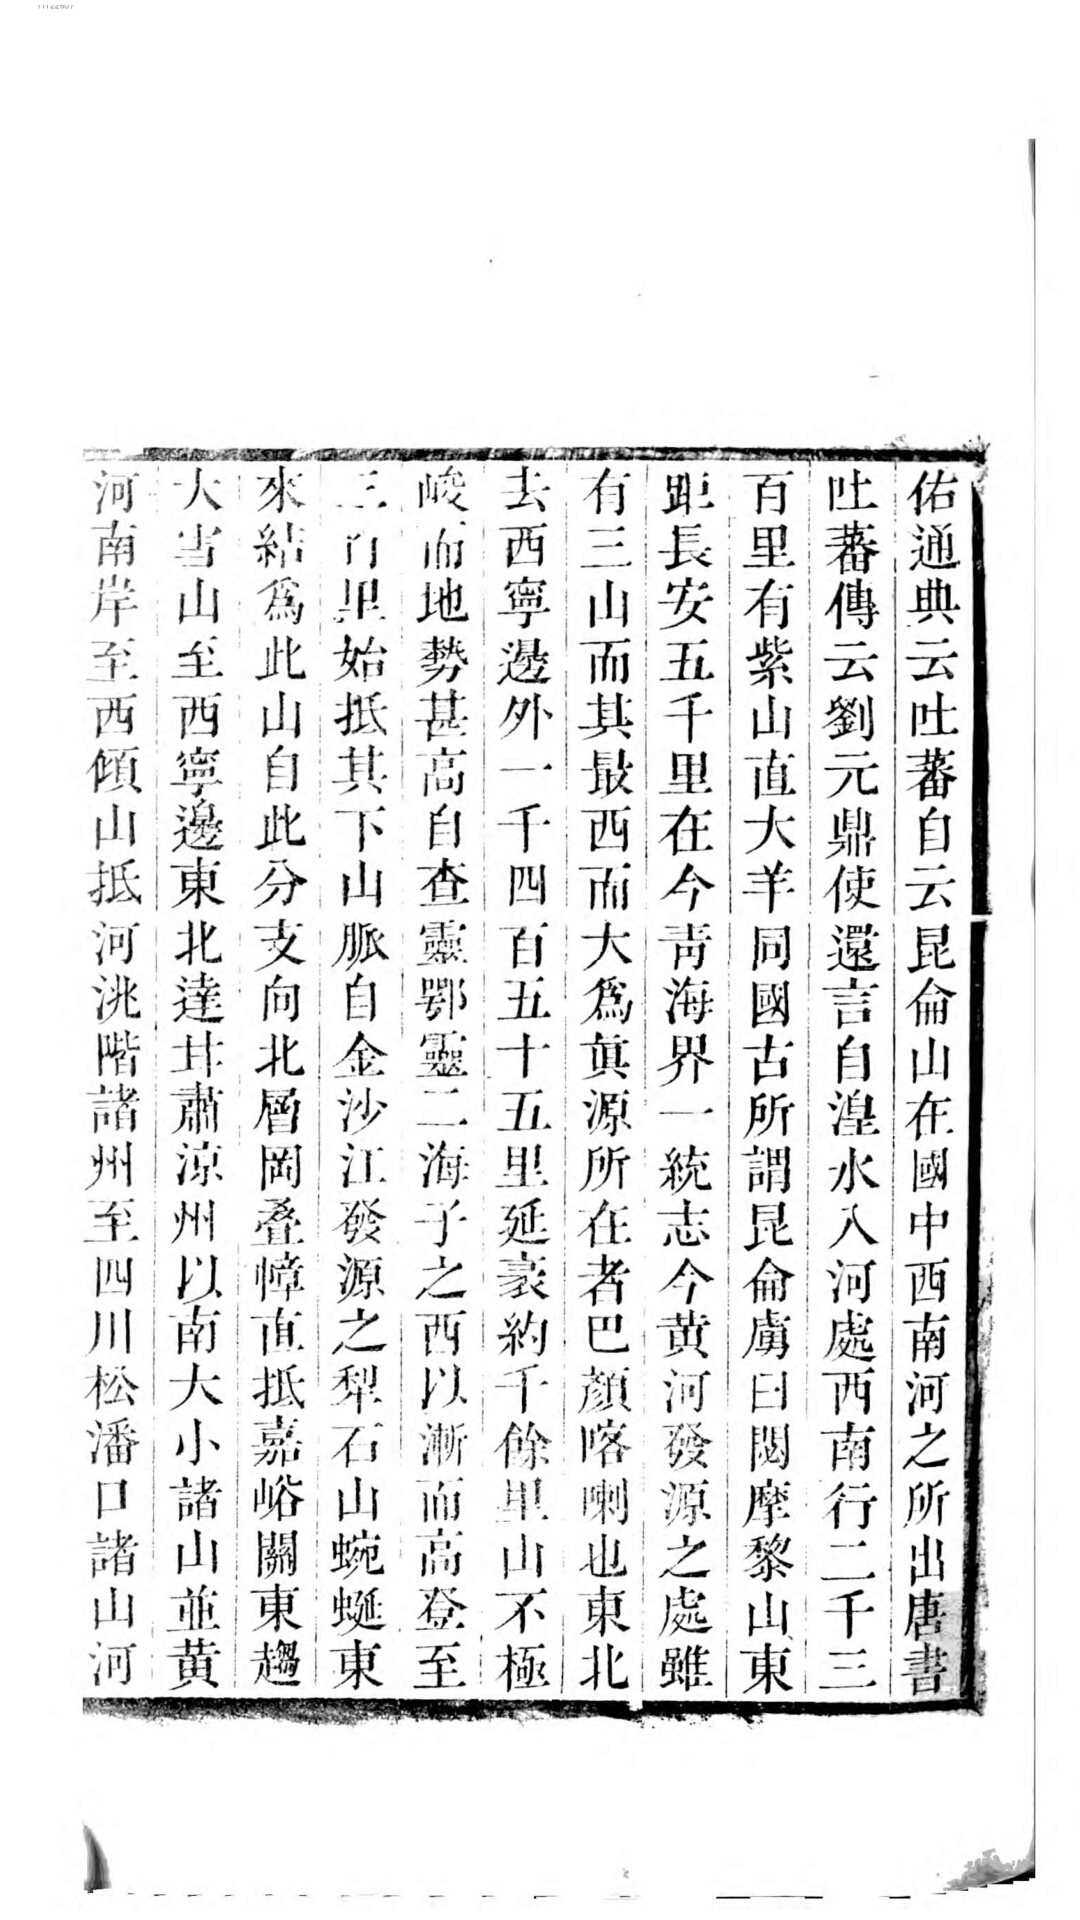 佑通典云吐蕃自云昆侖山在國中西南河之所出唐書
吐蕃傳云劉元鼎使還言自湟水入河處西南行二千三
百里有紫山直大羊同國古所謂昆侖虜曰悶摩黎山東
距長安五千里在今靑海界一統志今黄河發源之處雖
有三山而其最西而大爲眞源所在者巴顏喀喇也東北
去西寧邊外一千四百五十五里延袤約千餘里山不極
峻而地勢甚高自查靈鄂靈二海子之西以漸而高登至
三百里始抵其下山脈自金沙江發源之犁石山蜿蜒東
來結爲此山自此分支向北層岡叠嶂直抵嘉峪關東趨
大雪山至西寧邊東北達甘肅涼州以南大小諸山並黄
河南岸至西傾山抵河洮階諸州至四川松潘口諸山河